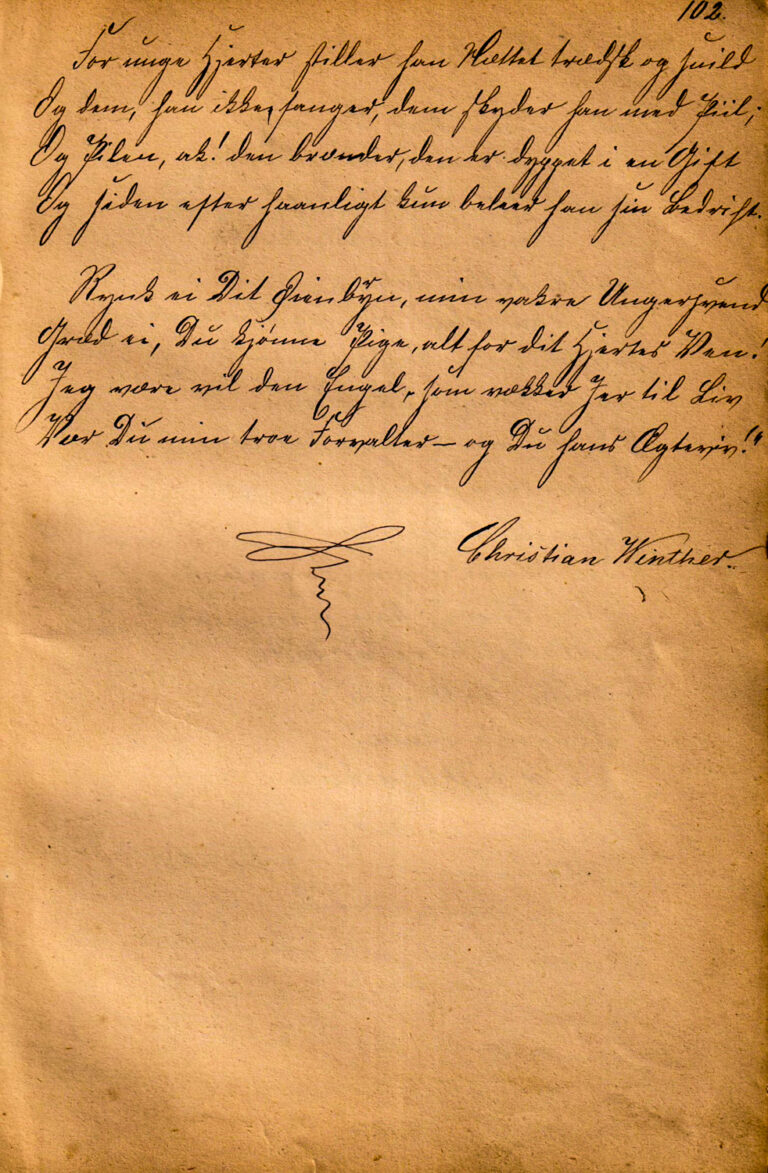 102.
For unge Hjerter stiller han Nættet trædsk og snild
Og dem, han ikke fanger, dem skyder han med Piil;
Og Pilen, ak! den brænder, den er dyppet i en Gift
Og siden efter haanligt kun beleer han sin Bedrift.
Rynk ei Dit Øienbryn, min vakre Ungersvend
Græd ei, Du kjønne Pige, alt for dit Hjertes Ven!
Jeg være vil den Engel, som vækker Jer til Liv
Vær Du min troe Forvalter – og Du hans Ægteviv!"
Christian Winther.